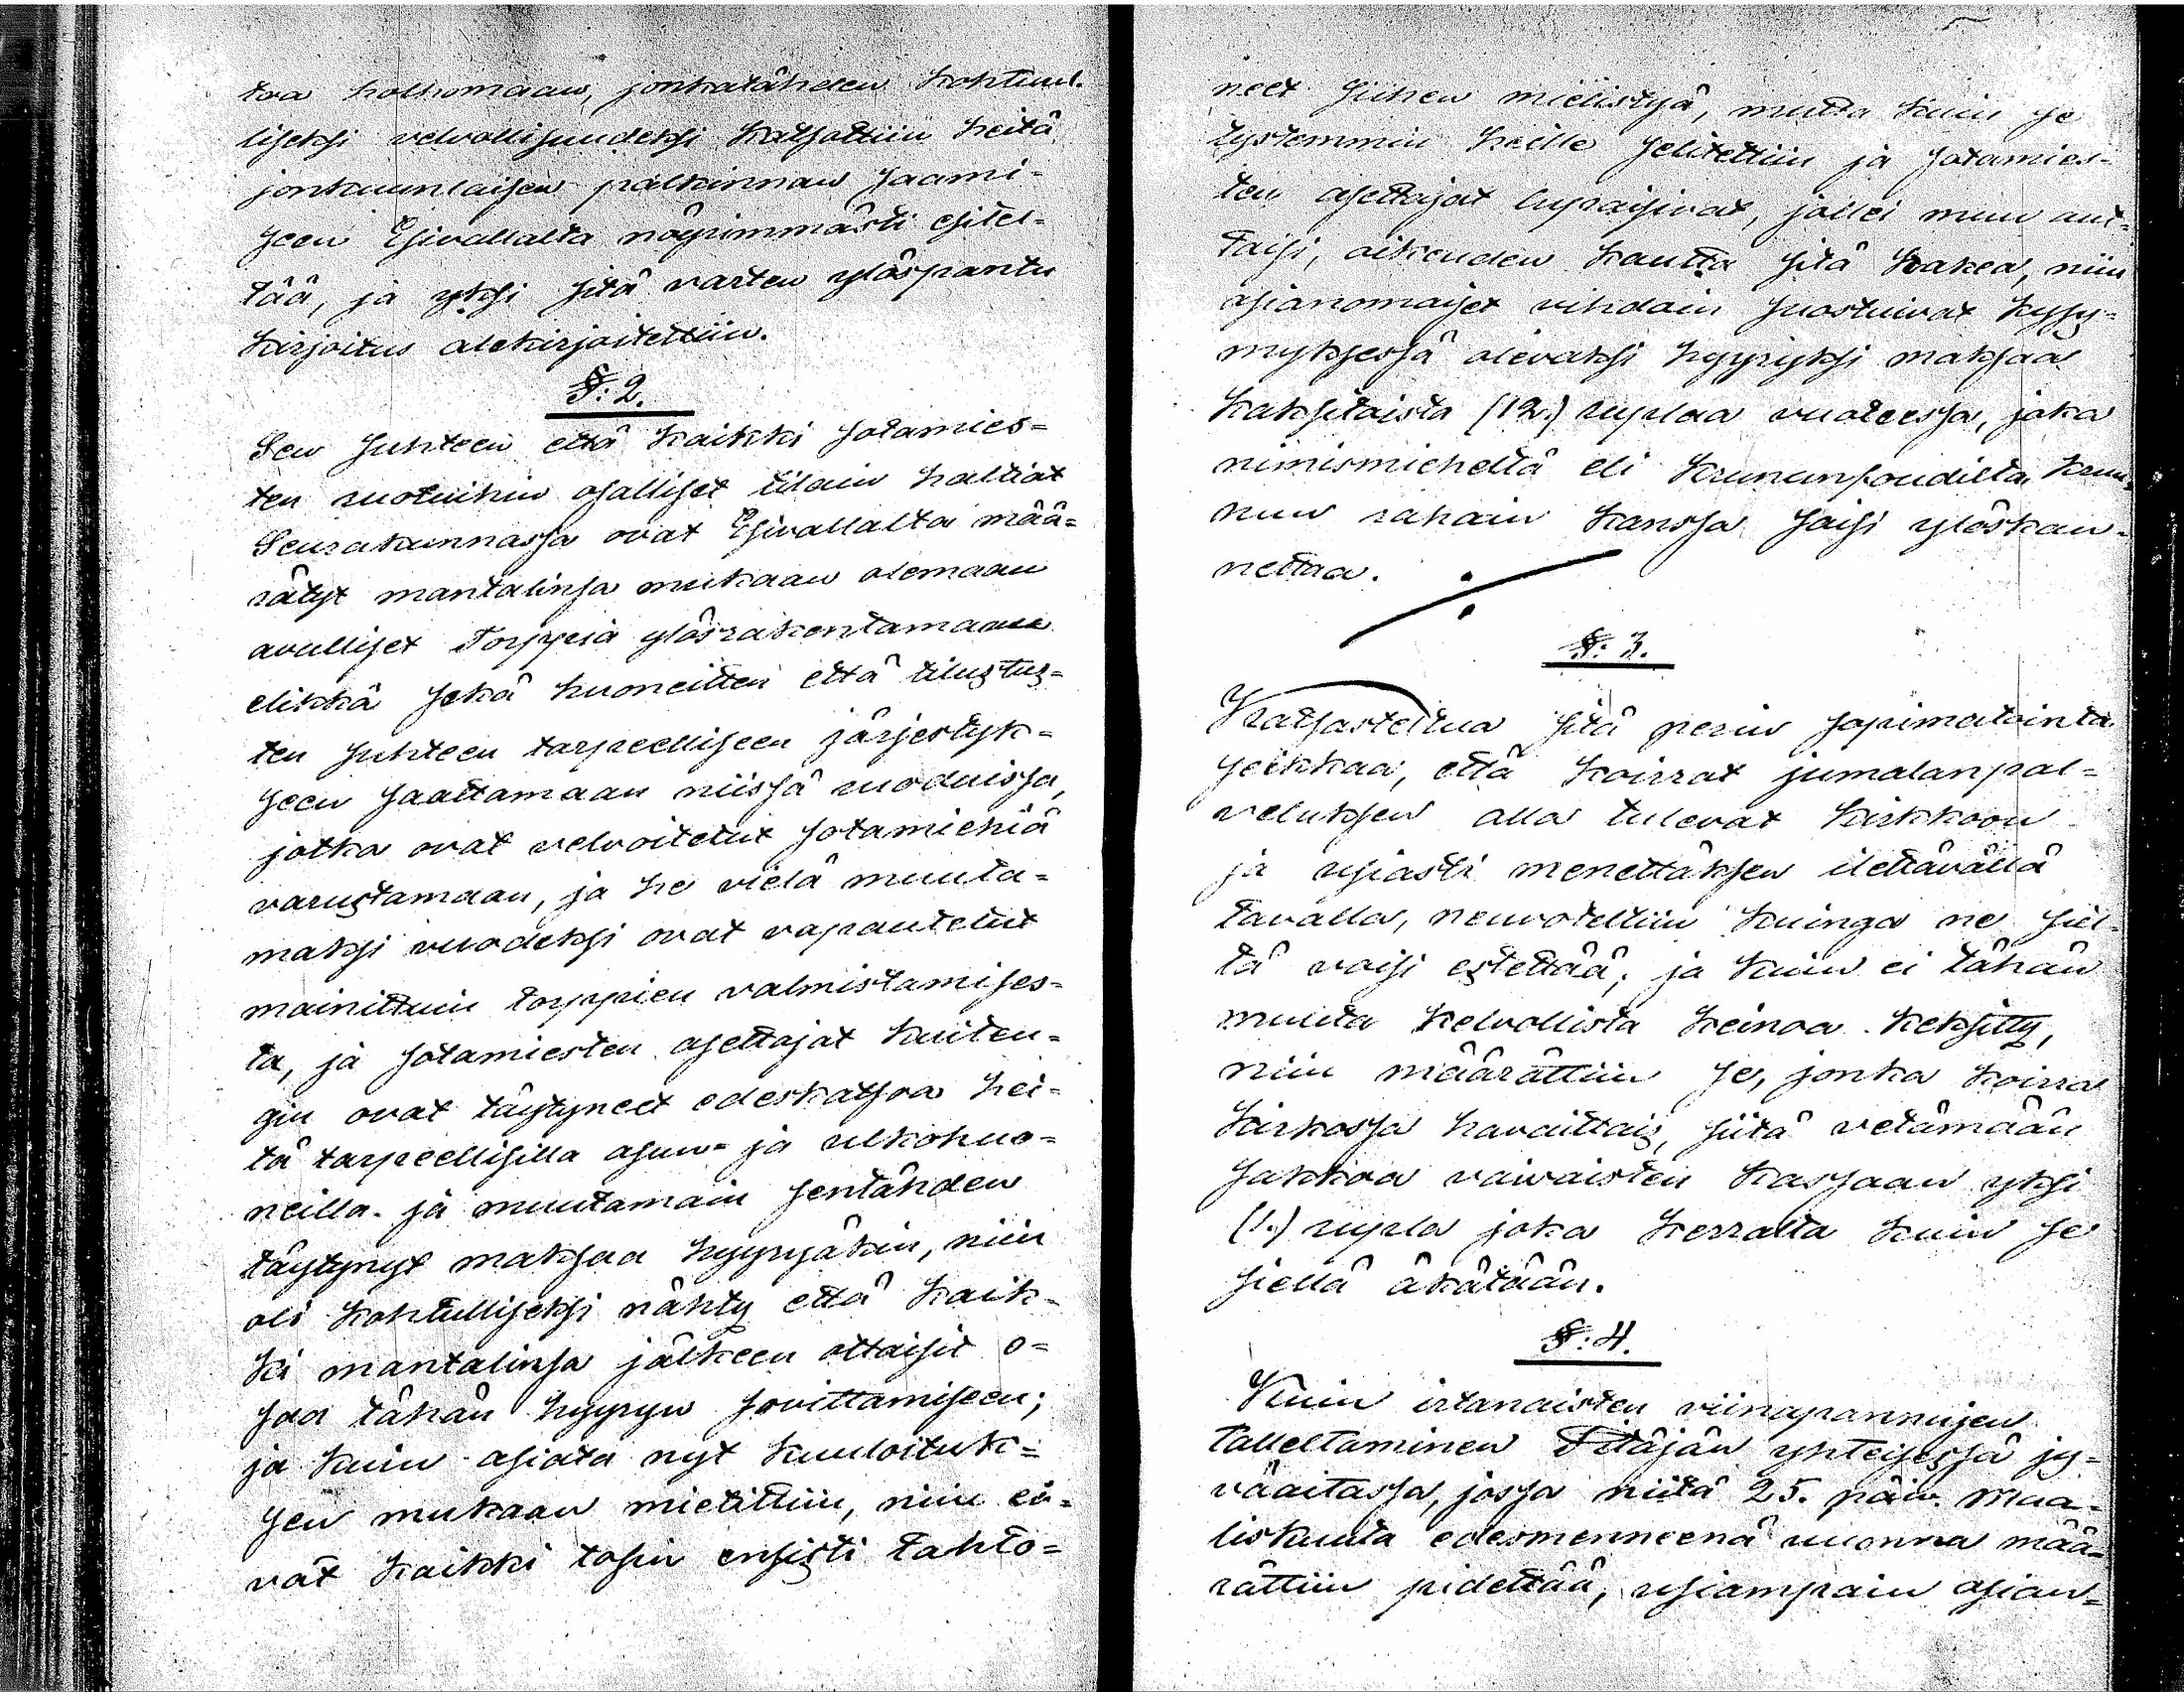 toa holhomaan, jonkatähden kohtuul-
liseksi velvollisuudeksi katsottiin heitä
jonkuunlaisen palkinnan saami-
seen Esivallalta nöyrimmästi esitel-
tää, ja yksi sitä varten ylöspantu
kirjoitus alekirjoitettiin.
§: 2.
Sen suhteen että kaikki sotamies-
ten ruotuihin osalliset tilain haltiat
Seurakunnassa ovat Esivallalta mää-
rätyt mantalinsa mukaan olemaan
avulliset Torppia ylösrakentamaan
elikkä sekä huoneitten että tilustus-
ten suhteen tarpeelliseen järjestyk-
seen saattamaan niissä ruoduissa,
jotka ovat velvoitetut sotamiehiä
varustamaan, ja he vielä muuta-
maksi vuodeksi ovat vapautetut
mainittuin torppien valmistamises-
ta, ja sotamiesten asettajat kuiten-
gin ovat täytyneet edeskatsoa hei-
tä tarpeellisilla asun- ja ulkohuo-
neilla. ja muutamain sentähden
täytynyt maksaa hyyryäkin, niin
oli kohtulliseksi nähty että kaik-
ki mantalinsa jälkeen ottaisit o-
saa tähän hyyryn sovittamiseen;
ja kuin asiata nyt kuuloituk-
sen mukaan mietittiin, niin ei-
vät kaikki tosin ensisti tahto-
neet siihen mielistyä, mutta kuin se
tystemmin heille selitettiin ja sotamies-
ten asettajat lupaisivat, jollei muu aut-
taisi, oikeuden kautta sitä hakea, niin
asianomaiset vihdoin suostuivat kysy-
myksessä olevaksi hyyryksi maksaa
kaksitoista (12.) ruplaa vuoteessa, joka
nimismieheltä eli krununfoudilta kruu-
nun rahain kanssa saisi ylöskan-
nettaa.
§: 3.
Katsasteltua sitä perin sopimatointa
seikkaa, että koirrat jumalanpal-
veluksen alla tulevat kirkkoon
ja usiasti menettäksen ilettävällä
tavalla, neuvoteltiin kuinga ne siel-
tä voisi estettää; ja kuin ei tähän
muuta kelvollista keinoa keksitty,
niin määrättiin se, jonka koirra
kirkossa havaittais, siitä vetämään
sakkoa vaivaisten kassaan yksi
(1.) rupla joka kerralta kuin se
siellä äkätään.
§: 4.
Kuin irtanaisten viinapannujen
talleltaminen Pitäjän yhteisessä jy-
väaitassa, jossa niitä 25. päiv. Maa-
liskuuta edesmenneenä vuonna mää-
rättiin pidettää, usiampain asian-